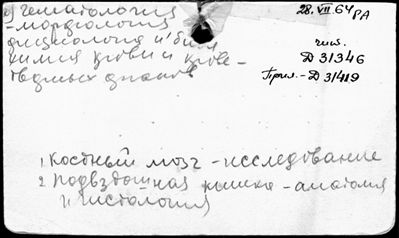 с) Гематология
- морфология
физиология и био
химия крови и крове-
творных органов
28.VII.64 РА
чит.
Д 31346
Прил. - Д 31419
1. Костный мозг - исследование
2. Подвздошная кишка - анатомия
и гистология